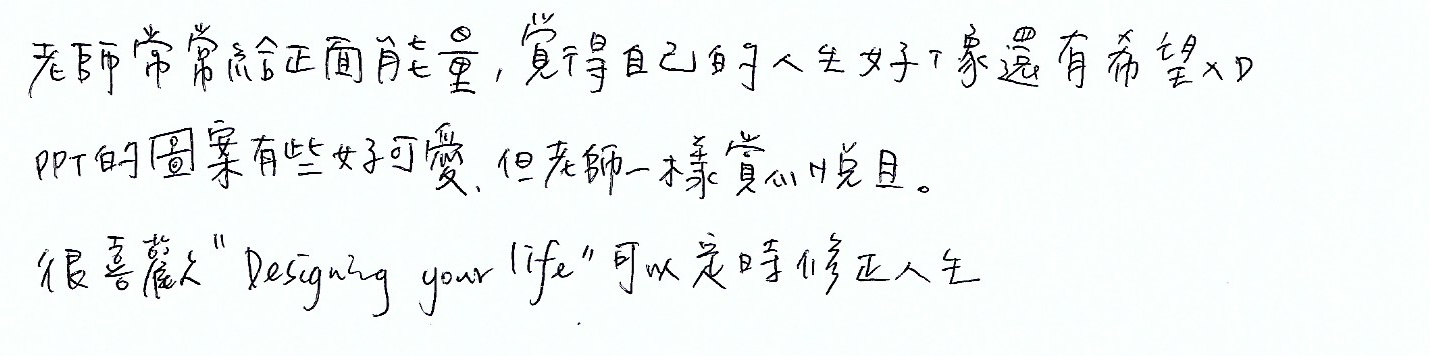 老師常常給正面能量,覺得自己的人生好像還有希望XD
PPT的圖案有些好可愛、但老師一樣賞心悅目。
很喜歡"Designing your life"可以定時修正人生